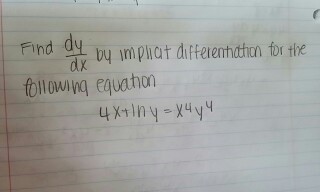 Find dy/dx by implicit differentiation for the
following equation
4x+ln y = x⁴y⁴